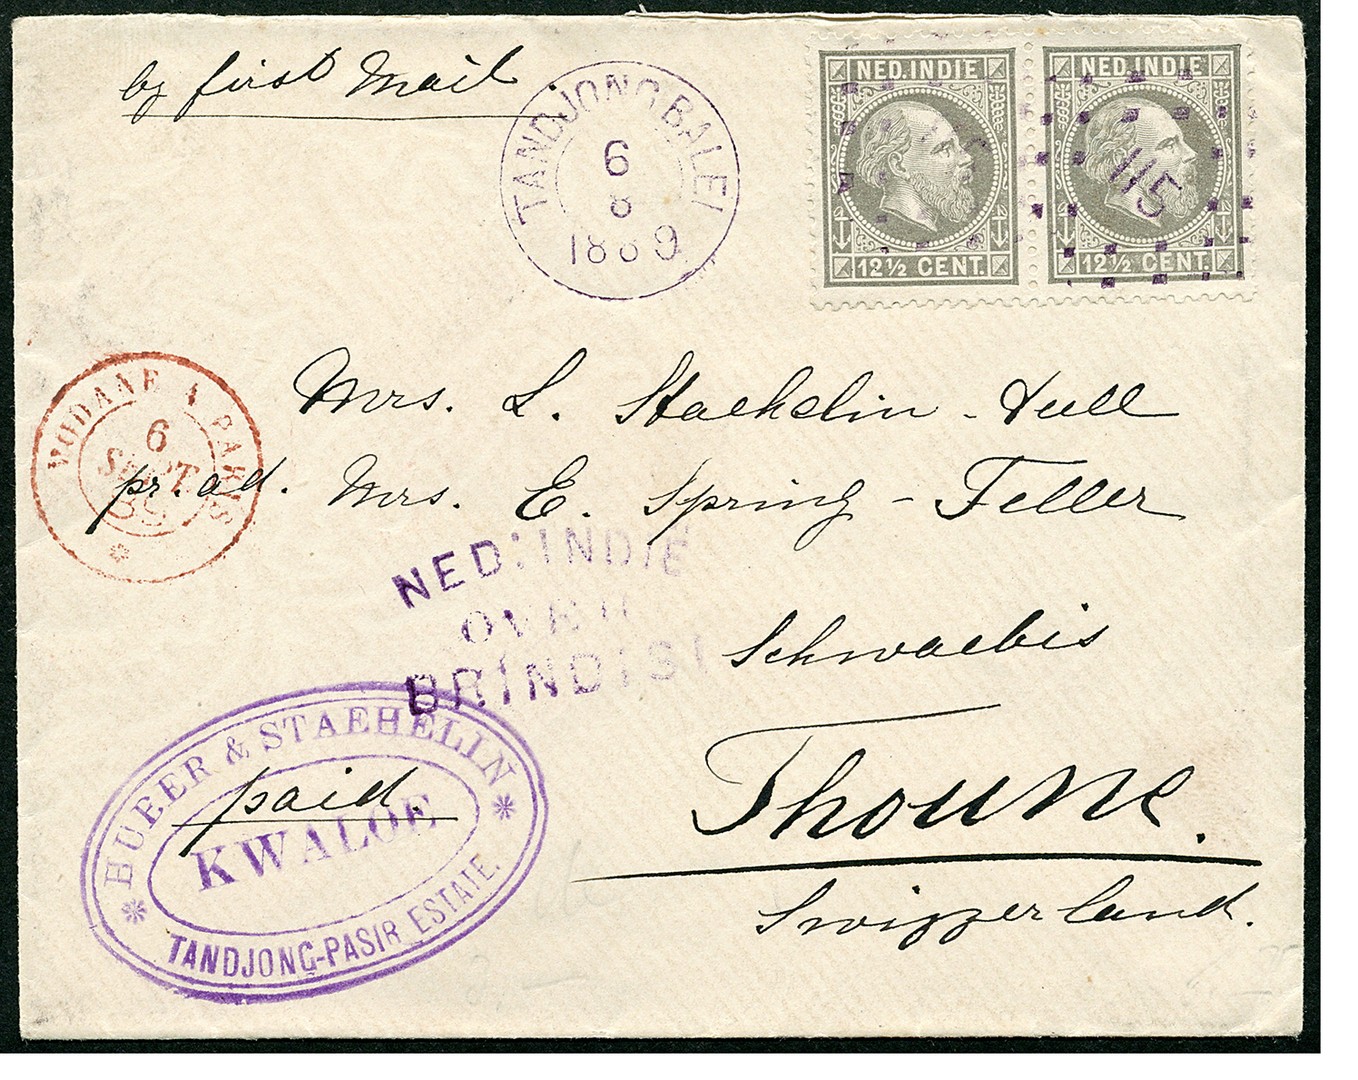 by first Mail
TANDJONG BALEI
6
8
1889
NED. INDIE
12½ CENT.
NED. INDIE
12½ CENT.
115
MODANE A PARIS
6
SEPT.
89
Mrs. L. Staehelin - Tull
pr. ad. Mrs. E. Spring - Feller
NED: INDIE
OVER
BRINDISI
Schwaebis
Thoune.
Swizzerland.
HUBER & STAEHELIN
paid.
KWALOE
TANDJONG-PASIR ESTATE.